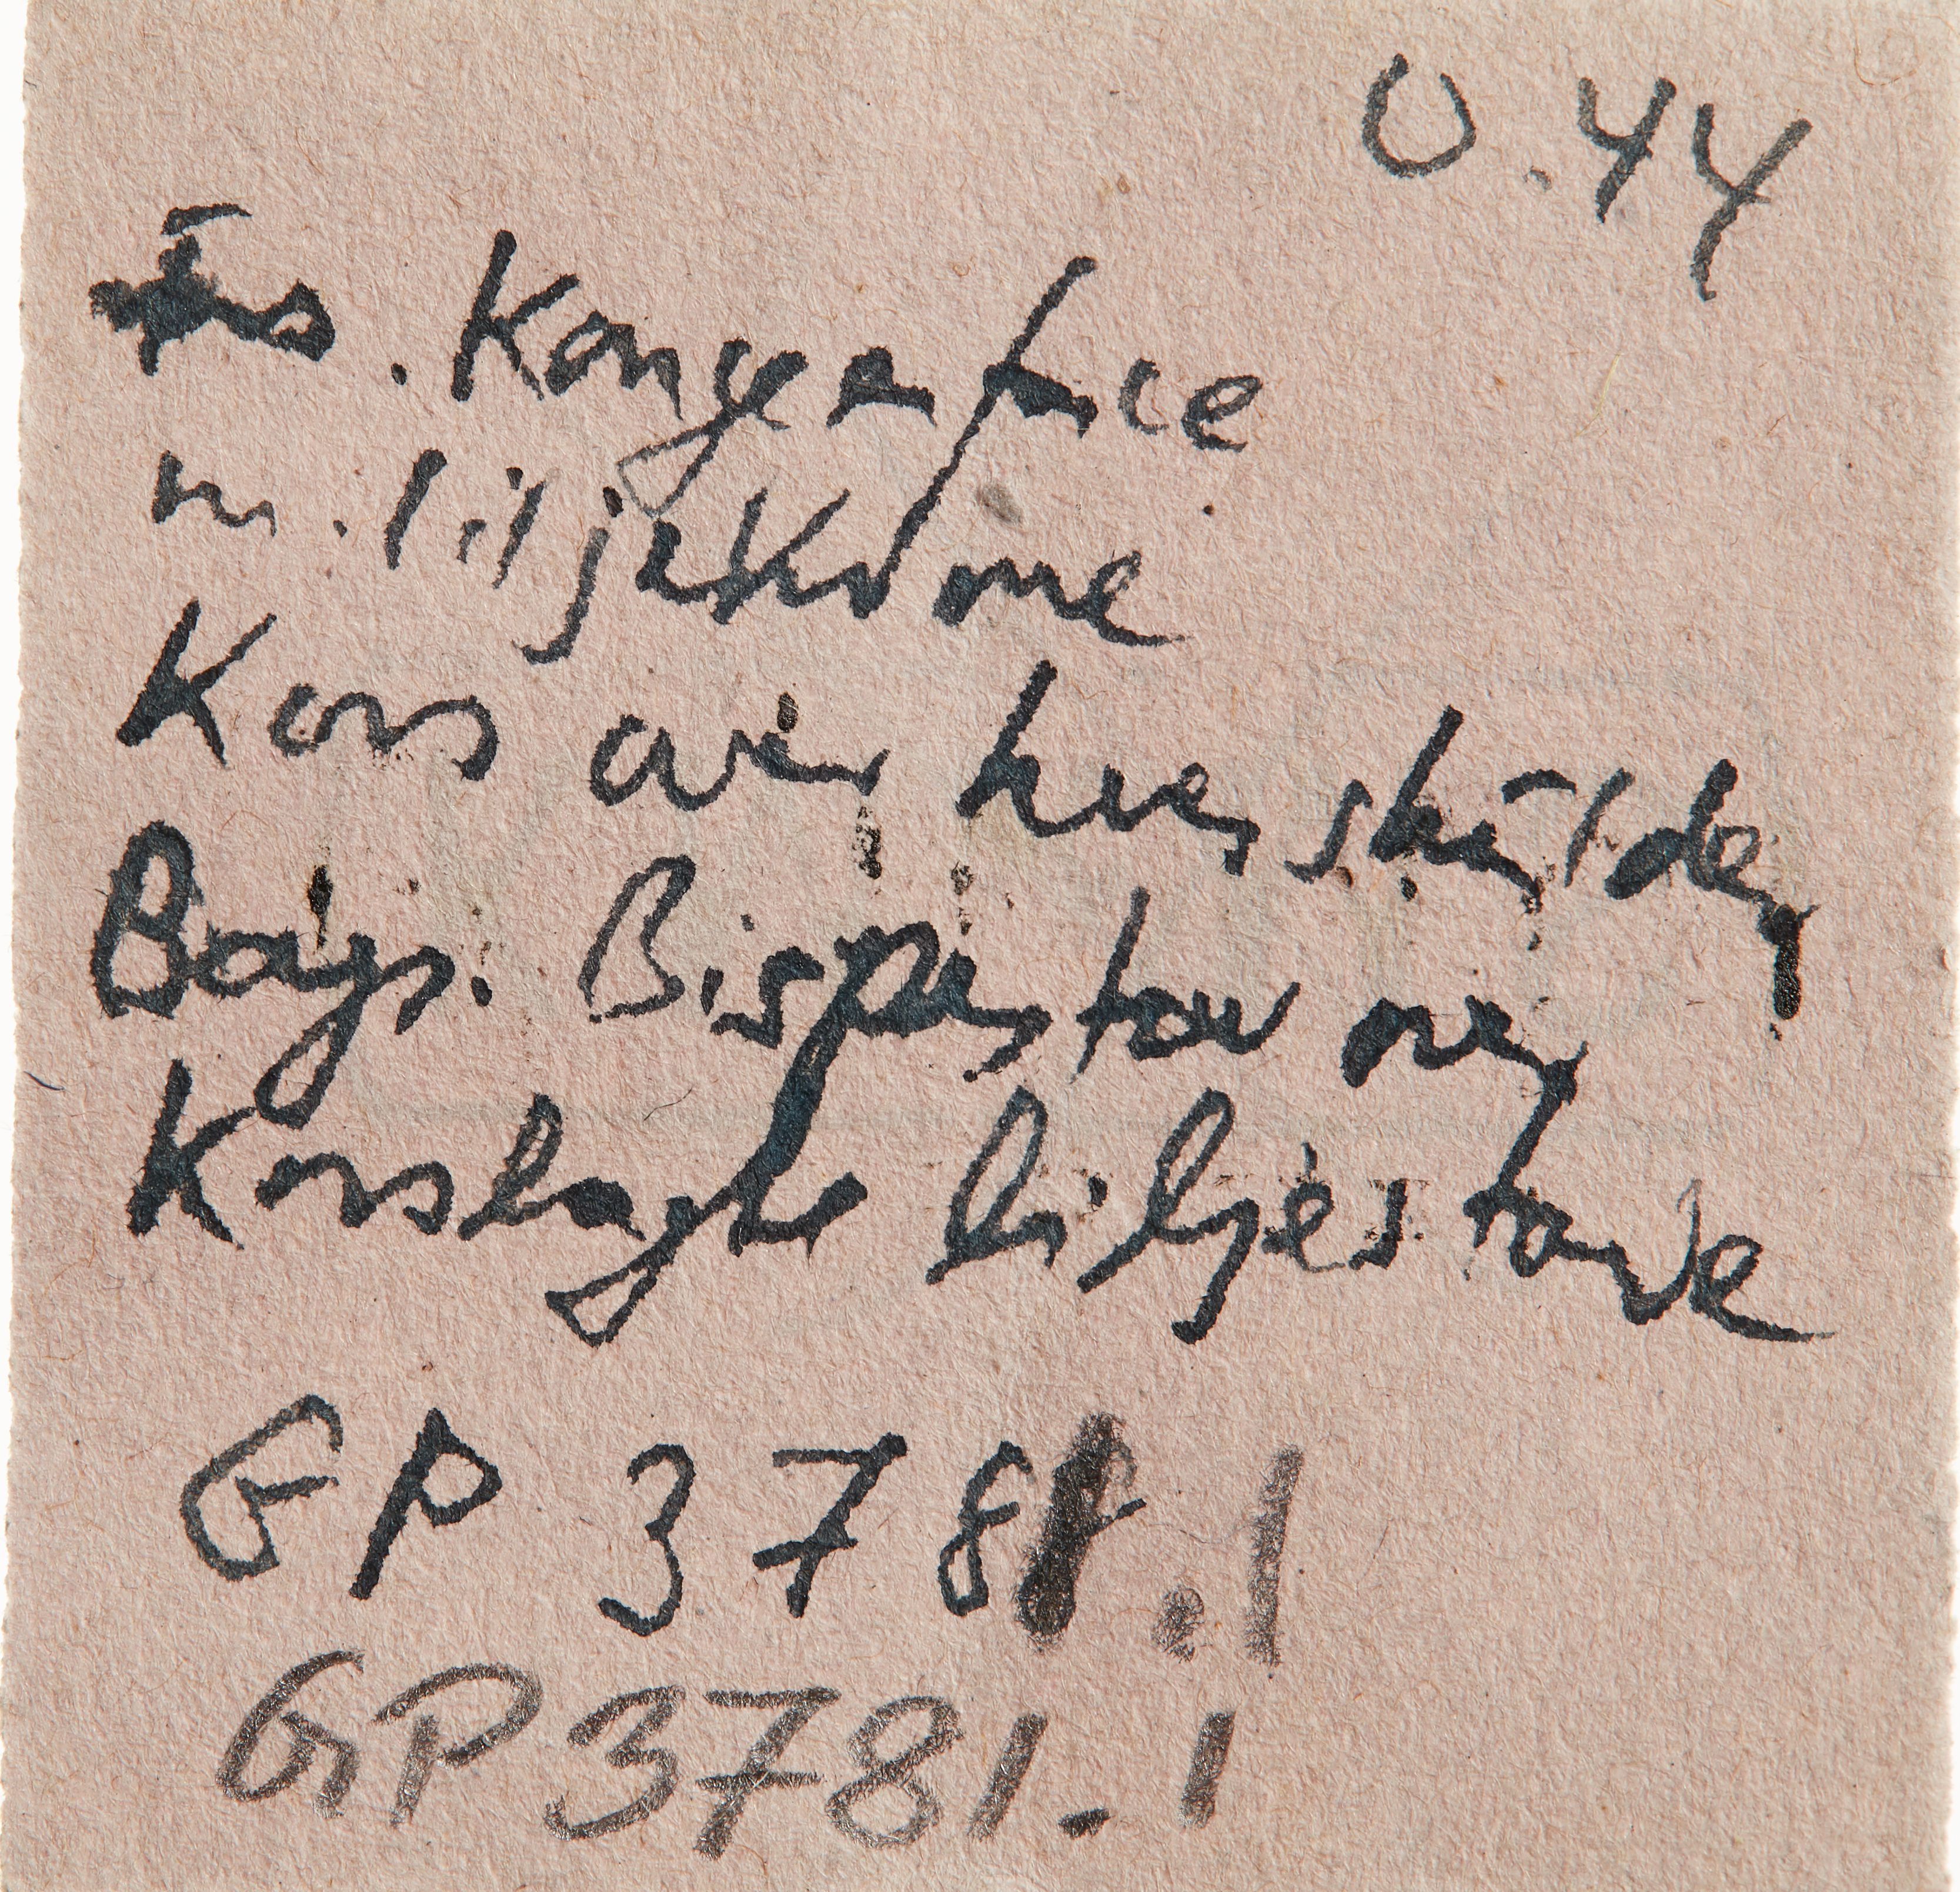 0.44
Fs. Kongeface
m. liljekrone
Kors over hver skulder
Bags. Bispestav over
Korslagte liljestave
GP 378 .1
GP 3781.1